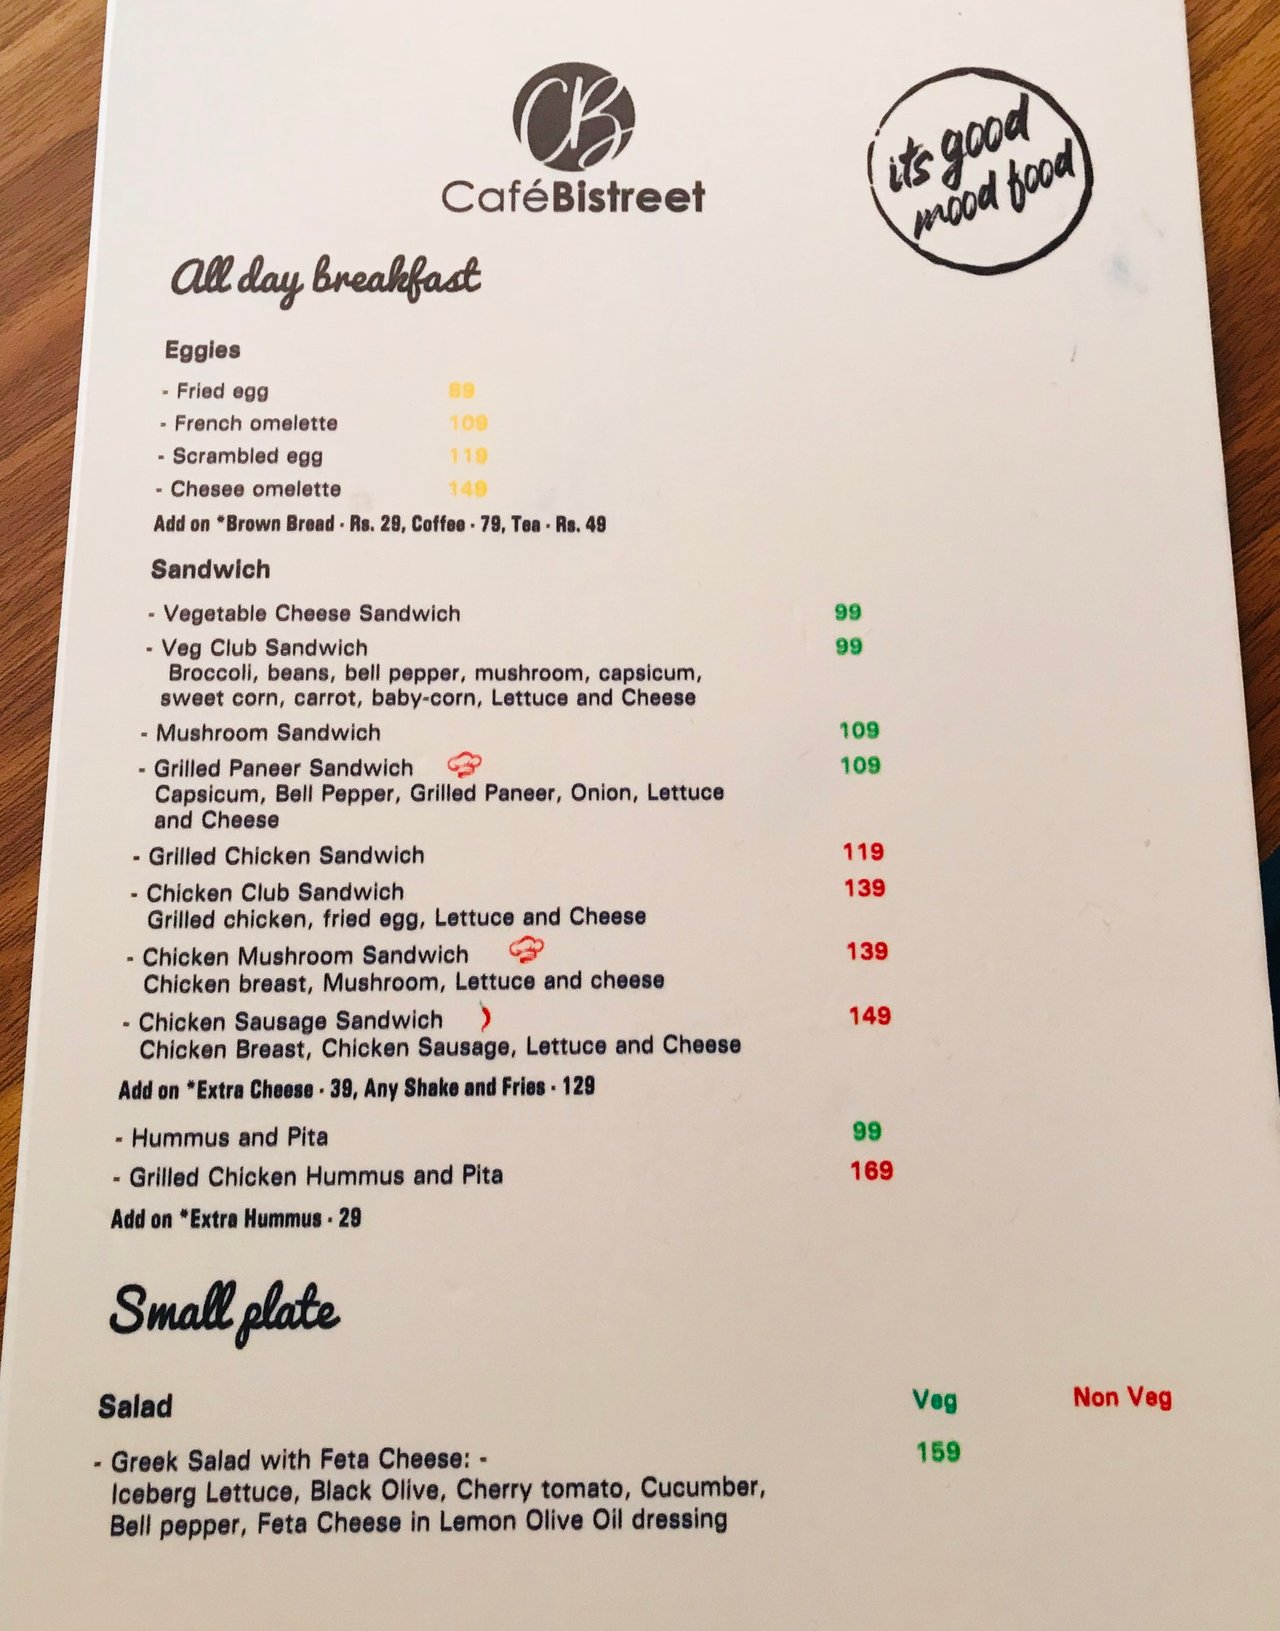 CB
CaféBistreet
its good
mood food
All day breakfast
Eggies
- Fried egg 89
- French omelette 109
- Scrambled egg 119
- Chesee omelette 149
Add on *Brown Bread - Rs. 29, Coffee - 79, Tea - Rs. 49
Sandwich
- Vegetable Cheese Sandwich 99
- Veg Club Sandwich 99
Broccoli, beans, bell pepper, mushroom, capsicum,
sweet corn, carrot, baby-corn, Lettuce and Cheese
- Mushroom Sandwich 109
- Grilled Paneer Sandwich 109
Capsicum, Bell Pepper, Grilled Paneer, Onion, Lettuce
and Cheese
- Grilled Chicken Sandwich 119
- Chicken Club Sandwich 139
Grilled chicken, fried egg, Lettuce and Cheese
- Chicken Mushroom Sandwich 139
Chicken breast, Mushroom, Lettuce and cheese
- Chicken Sausage Sandwich 149
Chicken Breast, Chicken Sausage, Lettuce and Cheese
Add on *Extra Cheese - 39, Any Shake and Fries - 129
- Hummus and Pita 99
- Grilled Chicken Hummus and Pita 169
Add on *Extra Hummus - 29
Small plate
Salad Veg Non Veg
- Greek Salad with Feta Cheese: - 159
Iceberg Lettuce, Black Olive, Cherry tomato, Cucumber,
Bell pepper, Feta Cheese in Lemon Olive Oil dressing